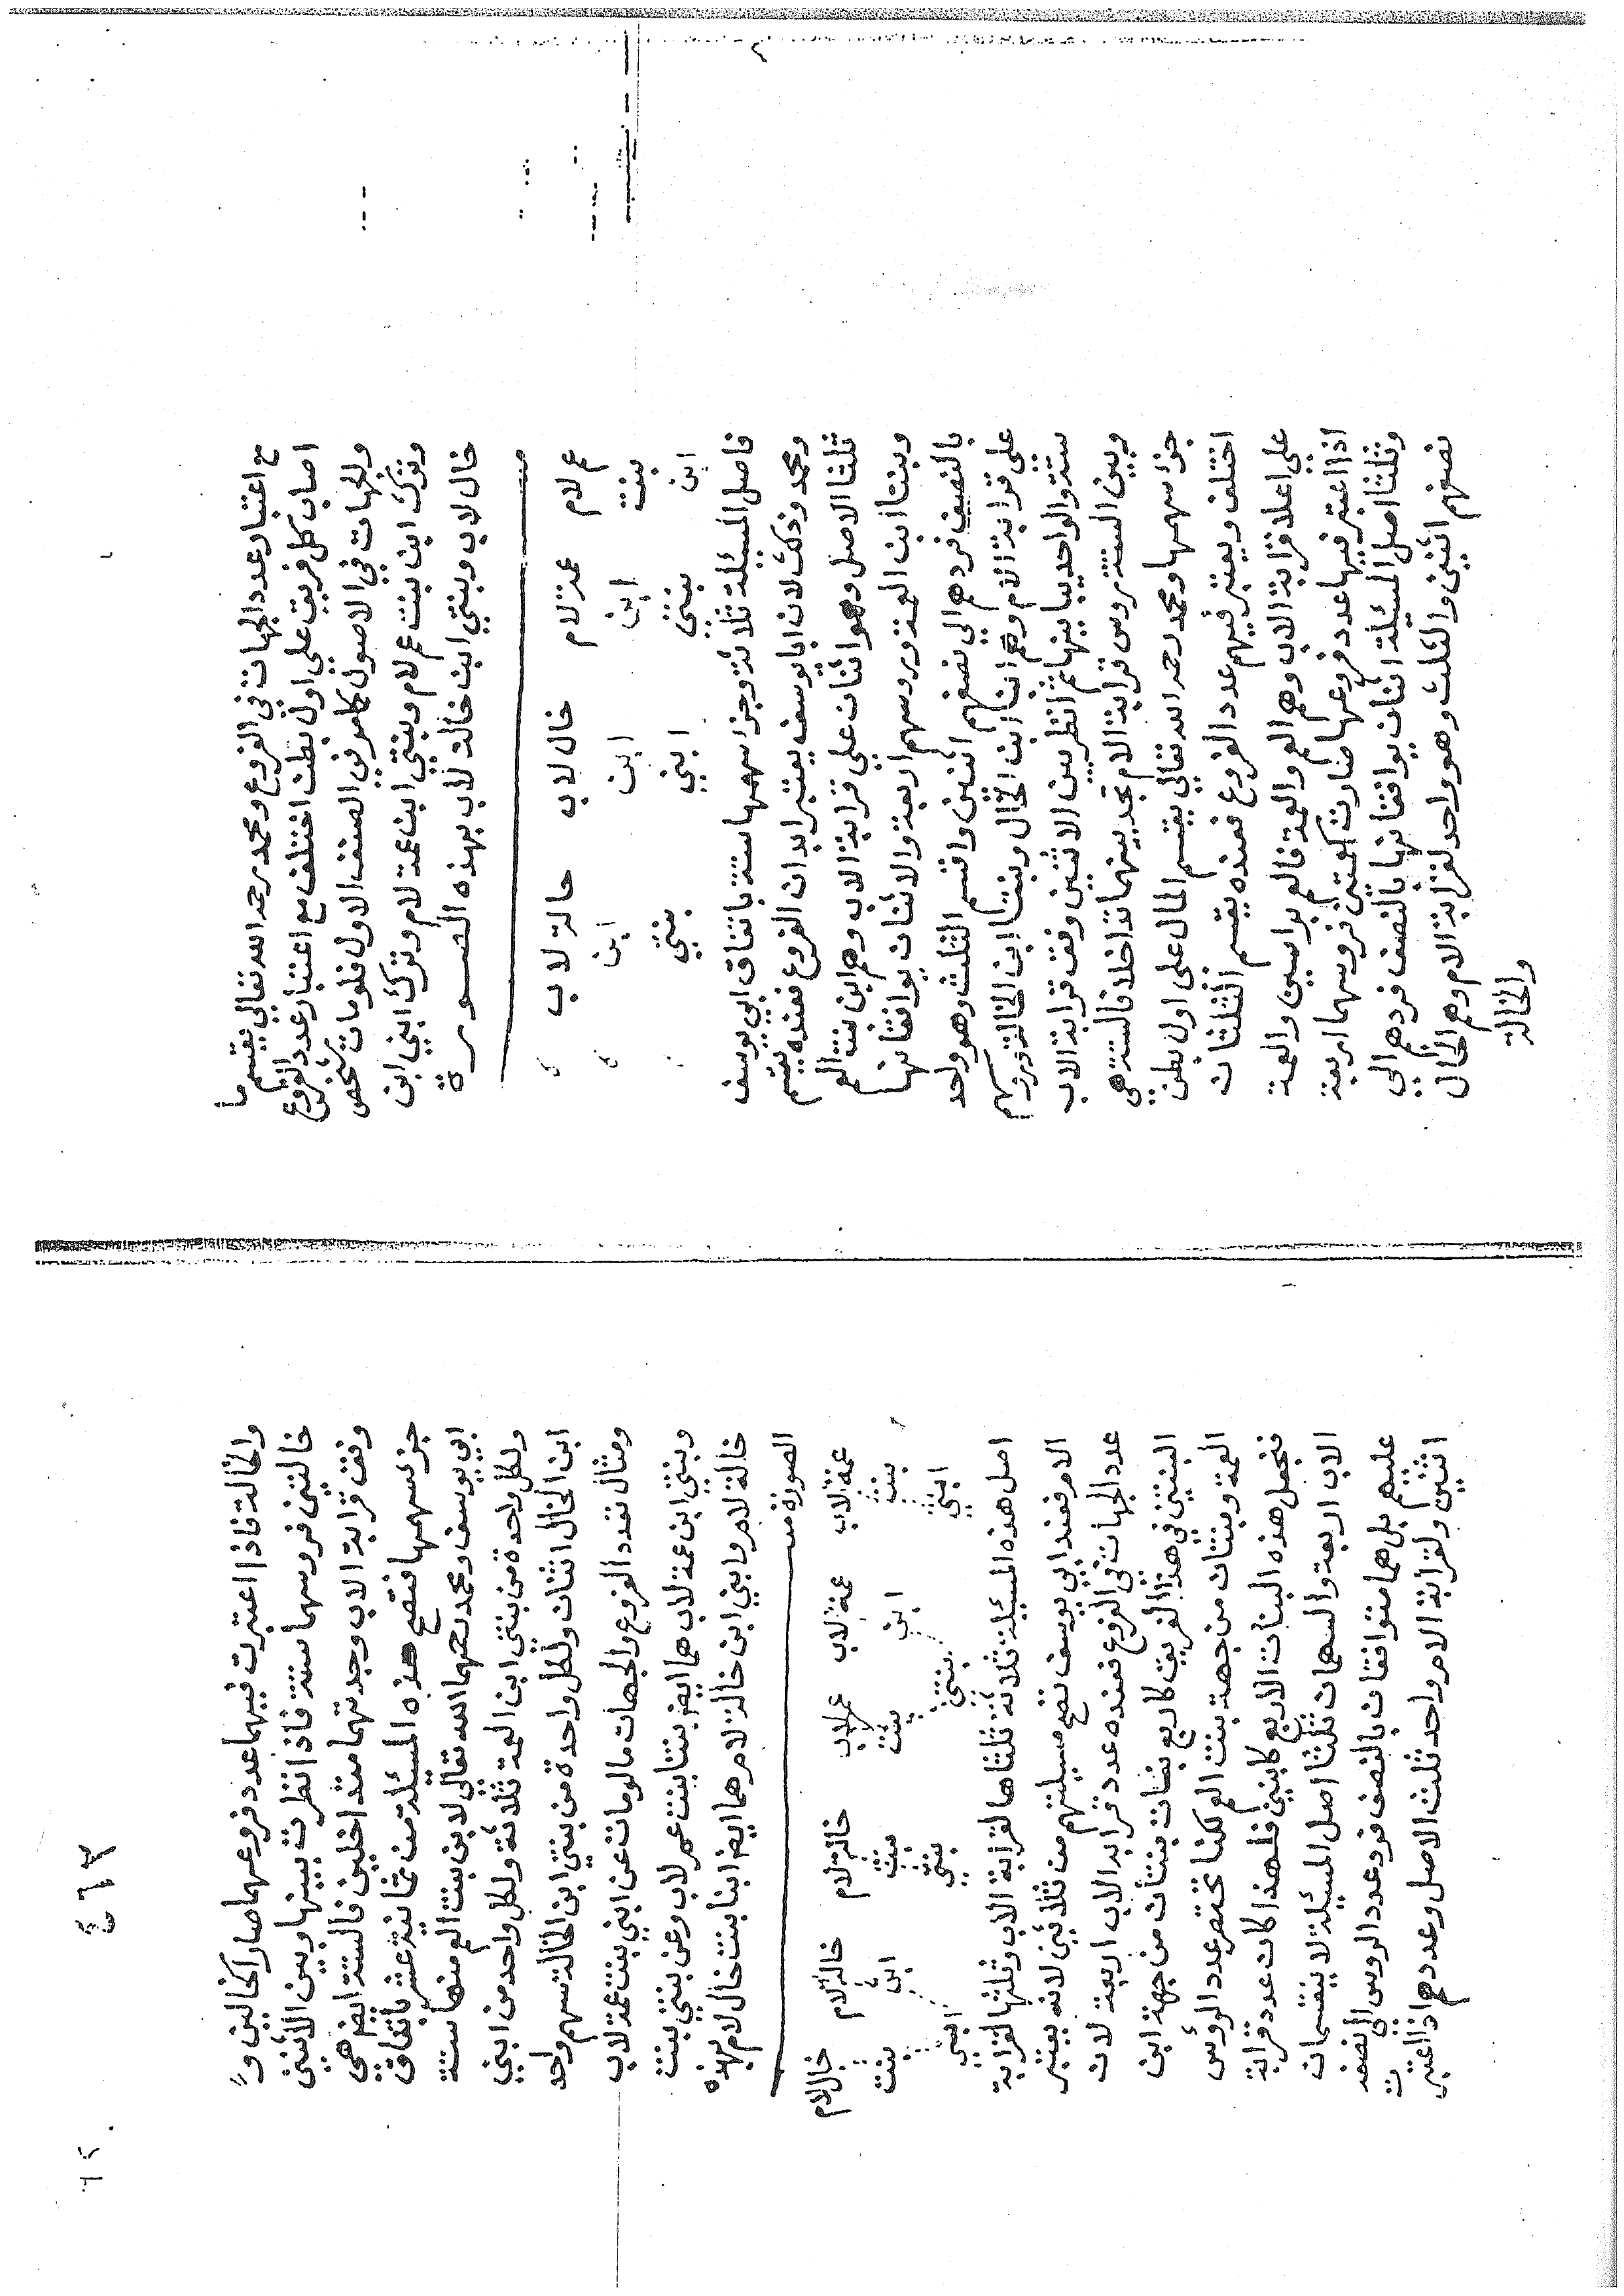 مع اعتبار عدد الجهات في الفروع ومحمد رحمه الله تعالي يقسم ما
اصاب كل فريق علي اول بطن اختلف مع اعتبار عدد الفروع
والجهات في الاصول كما مر في الصنف الاول فلو مات شخص
وترك ابن بنت عم لام وبنتي ابن عمة لام وترك ابني ابن
خال لاب وبنتي ابن خالة لاب بهذه الصورة
عم لام عمة لام خال لاب خالة لاب
بنت ابن ابن ابن
ابن بنتي ابني بنتي
فاصل المسئلة ثلاثة وجزا سهمها ستة باتفاق ابي يوسف
ومحمد وذلك لان ابا يوسف يعتبر ابدان الفروع فعنده يقسم
ثلثا الاصل وهو اثنان علي قرابة الاب وهم ابن بنت العم
وبنتا ابن العمة وروسهم اربعة والاثنان يوافقانها
بالنصف فردهم الي نصفهم اثنين واقسم الثلث وهو واحد
علي قرابة الام وهم ابنا ابن الخال وبنتا ابن الخالة وروسهم
ستة والواحد يباينها ثم انظر بين الاثنين وفق قرابة الاب
وبين الستة روس قرابة الام تجد بينهما تداخلا فالستة هي
جزا سهمها ومحمد رحمه الله تعالي يقسم المال علي اول بطن
اختلف ويعتبر فيهم عدد الفروع فعنده يقسم الثلثان
علي اعلا قرابة الاب وهم العم والعمة فالعم براسين والعمة
اذا اعتبر فيها عدد فروعها صارت كعمتين فروسهما اربعة
وثلثا اصل المسئلة اثنان يوافقانها بالنصف فردهم الي
نصفهم اثنين والثلث وهو واحد لقرابة الام وهم الخال
والخالة
٤٦٧
والخالة فاذا اعتبرت فيهما عدد فروعهما صار كخالين و
خالتين فروسهما ستة فاذا نظرت بينها وبين الاثنين
وفق قرابة الاب وجدتهما متداخلين فالستة ايضا هي
جزء سهمها فتصح هذه المسئلة من ثمانية عشر باتفاق
ابي يوسف ومحمد رحمهما الله تعالي لابن بنت العم منها ستة
ولكل واحدة من بنتي ابن العمة ثلاثة ولكل واحد من ابني
ابن الخال اثنان ولكل واحدة من بنتي ابن الخالة سهم واحد
ومثال تعدد الفروع والجهات ما لو مات عن ابني بنت عمة لاب
وبنتي ابن عمة لاب هما ايضا بنتا بنت عم لاب وعن بنتي بنت
خالة لام وابني ابن خالة لام هما ايضا ابنا بنت خال لام بهذه
الصورة
عمة لاب عمة لاب عم لاب خالة لام خالة لام خال لام
بنت ابن بنت بنت ابن بنت
ابني بنتي بنتي ابني
اصل هذه المسئلة ثلاثة ثلثاها لقرابة الاب وثلثها لقرابة
الام فعند ابي يوسف تصح مسيلتهم من ثلاثين لانه يعتبر
عدد الجهات في الفروع فعنده عدد قرابة الاب اربعة لان
البنتين في هذا الفريق كاربع بنات بنتان من جهة ابن
العمة وبنتان من جهة بنت العم لكنا نختصر عدد الروؤس
فنجعل هذه البنات الاربع كابنين فلهذا كان عدد قرابة
الاب اربعة والسهمان ثلثا اصل المسيلة لا ينقسمان
عليهم بل هما متوافقان بالنصف فرد عدد الروس الي نصفه
اثنين ولقرابة الام واحد ثلث الاصل وعددهم اذا اعتبرت